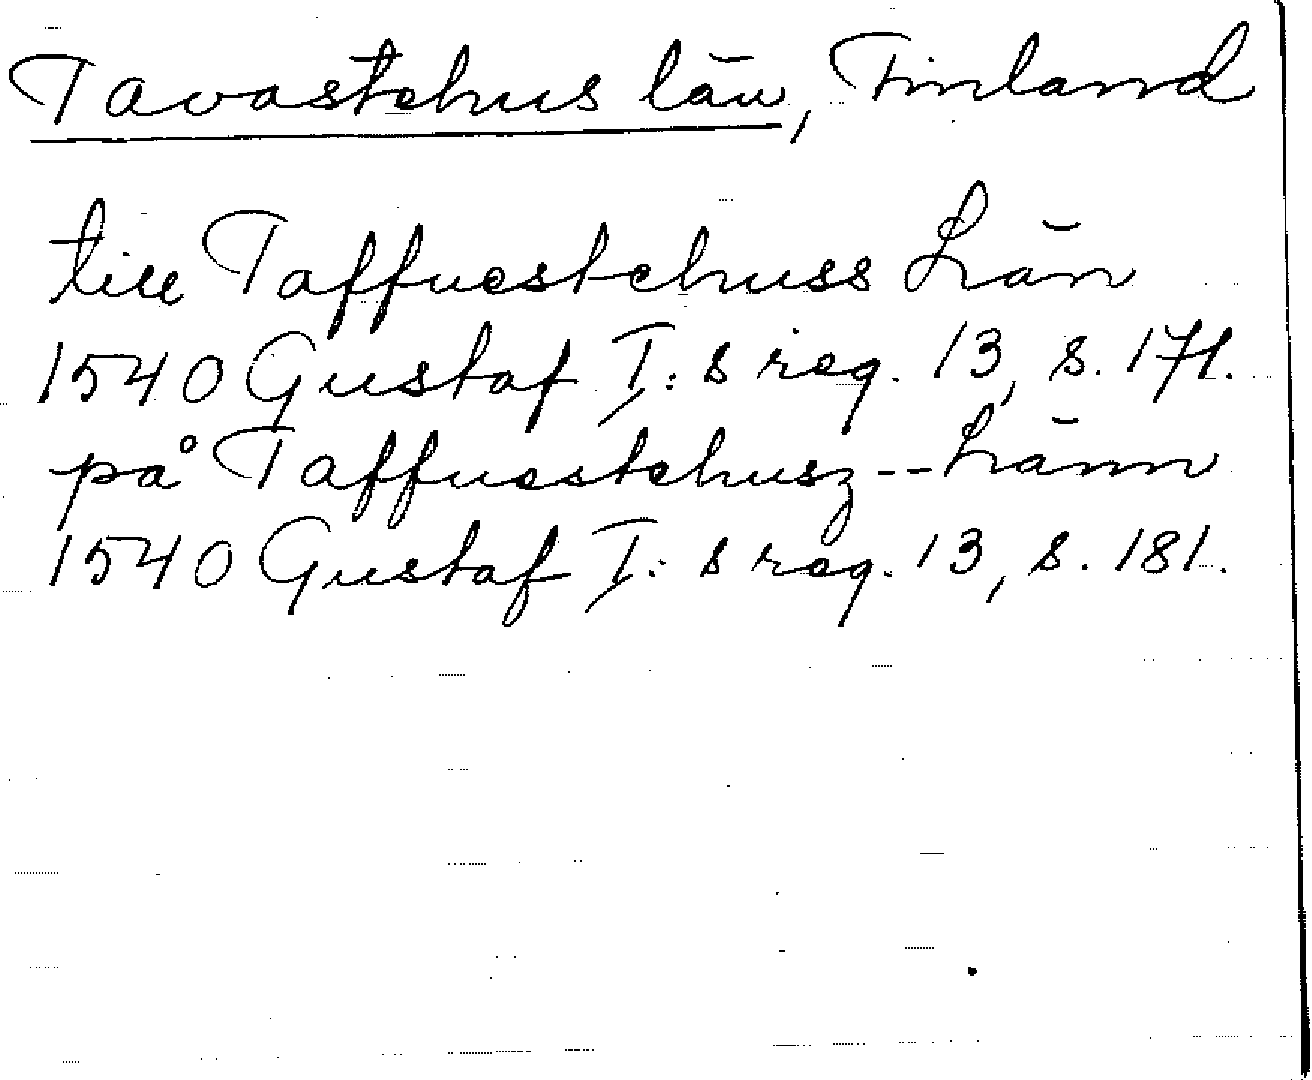 Tavastehus län, Finland
till Taffuestehuss Län
1540 Gustaf I:s reg. 13, s. 171.
på Taffuestehusz--Länn
1540 Gustaf I:s reg. 13, s. 181.